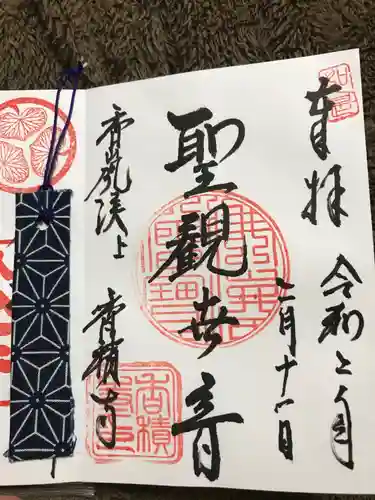 奉拝
令和二年
二月十一日
聖観世音
香嵐渓上
香積寺
香積